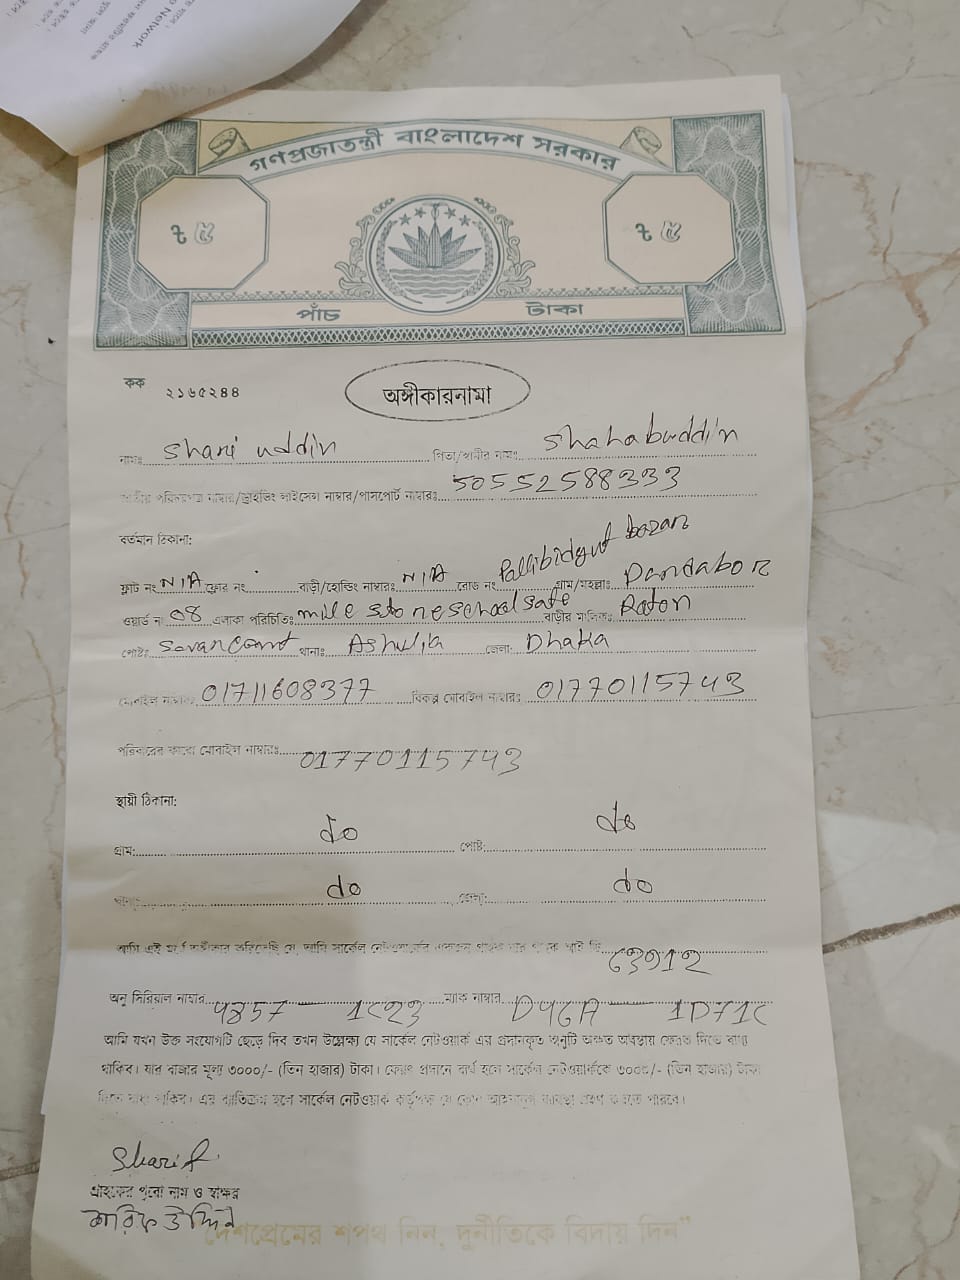 Network
গণপ্রজাতন্ত্রী বাংলাদেশ সরকার
৳ ৫ ৳ ৫
পাঁচ টাকা
কক ২১৬৫২৪৪
অঙ্গীকারনামা
নামঃ Shari uddin পিতা/স্বামীর নামঃ Shahabuddin
জাতীয় পরিচয়পত্র নাম্বার/ড্রাইভিং লাইসেন্স নাম্বার/পাসপোর্ট নাম্বারঃ 50552588333
বর্তমান ঠিকানা:
ফ্লাট নং N/A ফ্লোর নং বাড়ী/হোল্ডিং নাম্বারঃ N/A রোড নং Pallibidyut bazar গ্রাম/মহল্লাঃ Dendabor
ওয়ার্ড নং 08 এলাকা পরিচিতিঃ mile stone school বাড়ীর মালিকঃ Raton
পোষ্টঃ Savar Cannt থানাঃ Ashulia জেলা: Dhaka
মোবাইল নাম্বারঃ 01711608377 বিকল্প মোবাইল নাম্বারঃ 01770115743
পরিবারের কারো মোবাইল নাম্বারঃ 01770115743
স্থায়ী ঠিকানা:
গ্রাম: do পোষ্ট: do
থানা: do জেলা: do
আমি এই মর্মে অঙ্গীকার করিতেছি যে, আমি সার্কেল নেটওয়ার্কের একজন গ্রাহক যার
অনু সিরিয়াল নাম্বার 4857 — 1C23 ম্যাক নাম্বার D46A — 1D71C
আমি যখন উক্ত সংযোগটি ছেড়ে দিব তখন উল্লেখ্য যে সার্কেল নেটওয়ার্ক এর প্রদানকৃত অনুটি অক্ষত অবস্থায় ফেরত দিতে বাধ্য
থাকিব। যার বাজার মূল্য ৩০০০/- (তিন হাজার) টাকা। ফেরৎ প্রদানে ব্যর্থ হলে সার্কেল নেটওয়ার্ককে ৩০০০/- (তিন হাজার) টাকা
দিতে বাধ্য থাকিব। এর ব্যতিক্রম হলে সার্কেল নেটওয়ার্ক কর্তৃপক্ষ যে কোন আইনানুগ ব্যবস্থা গ্রহণ করতে পারবে।
Sharif
গ্রাহকের পুরো নাম ও স্বাক্ষর
শরিফ উদ্দিন
"দেশপ্রেমের শপথ নিন, দুর্নীতিকে বিদায় দিন"